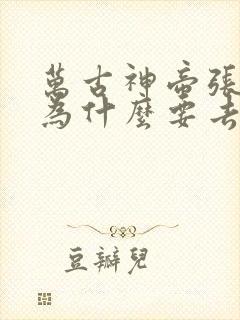 萬古神帝張
為什麼要去
豆瓣兒